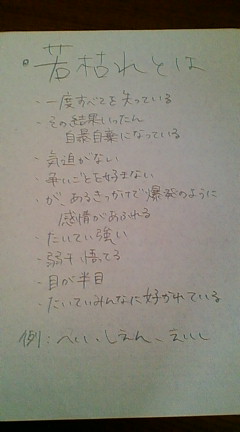 若枯れとは
・一度すべてを失っている
・その結果いったん
自暴自棄になっている
・気迫がない
・争いごとを好まない
・が、あるきっかけで爆発のように
感情があふれる
・たいてい強い
・弱干悟ってる
・目が半目
・たいていみんなに好かれている
例：へい、しえん、えいし